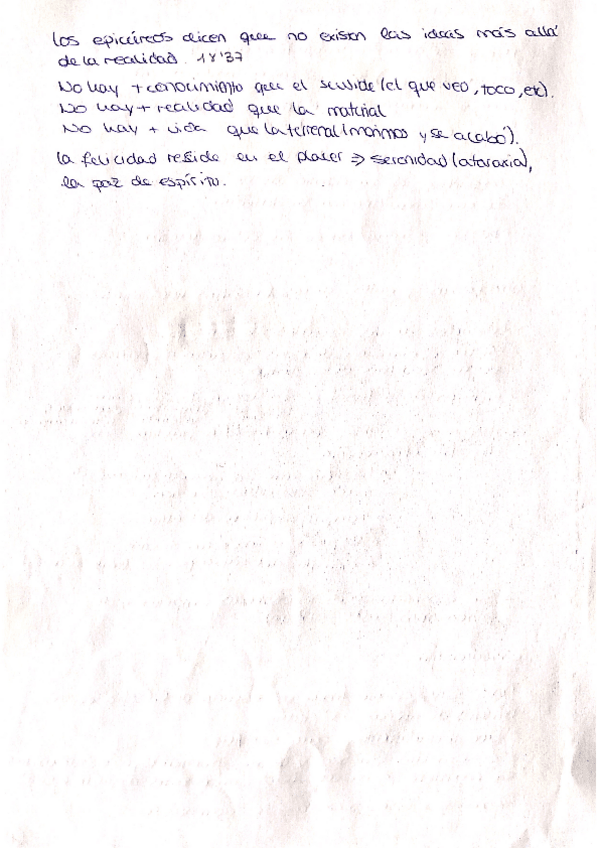 Los epicúreos dicen que no existen las ideas más allá
de la realidad. 18'37
No hay + conocimiento que el sensible (el que veo, toco, etc).
No hay + realidad que la material
No hay + vida que la terrenal (morimos y se acabó).
La felicidad reside en el placer ⇒ serenidad (ataraxia),
la paz de espíritu.